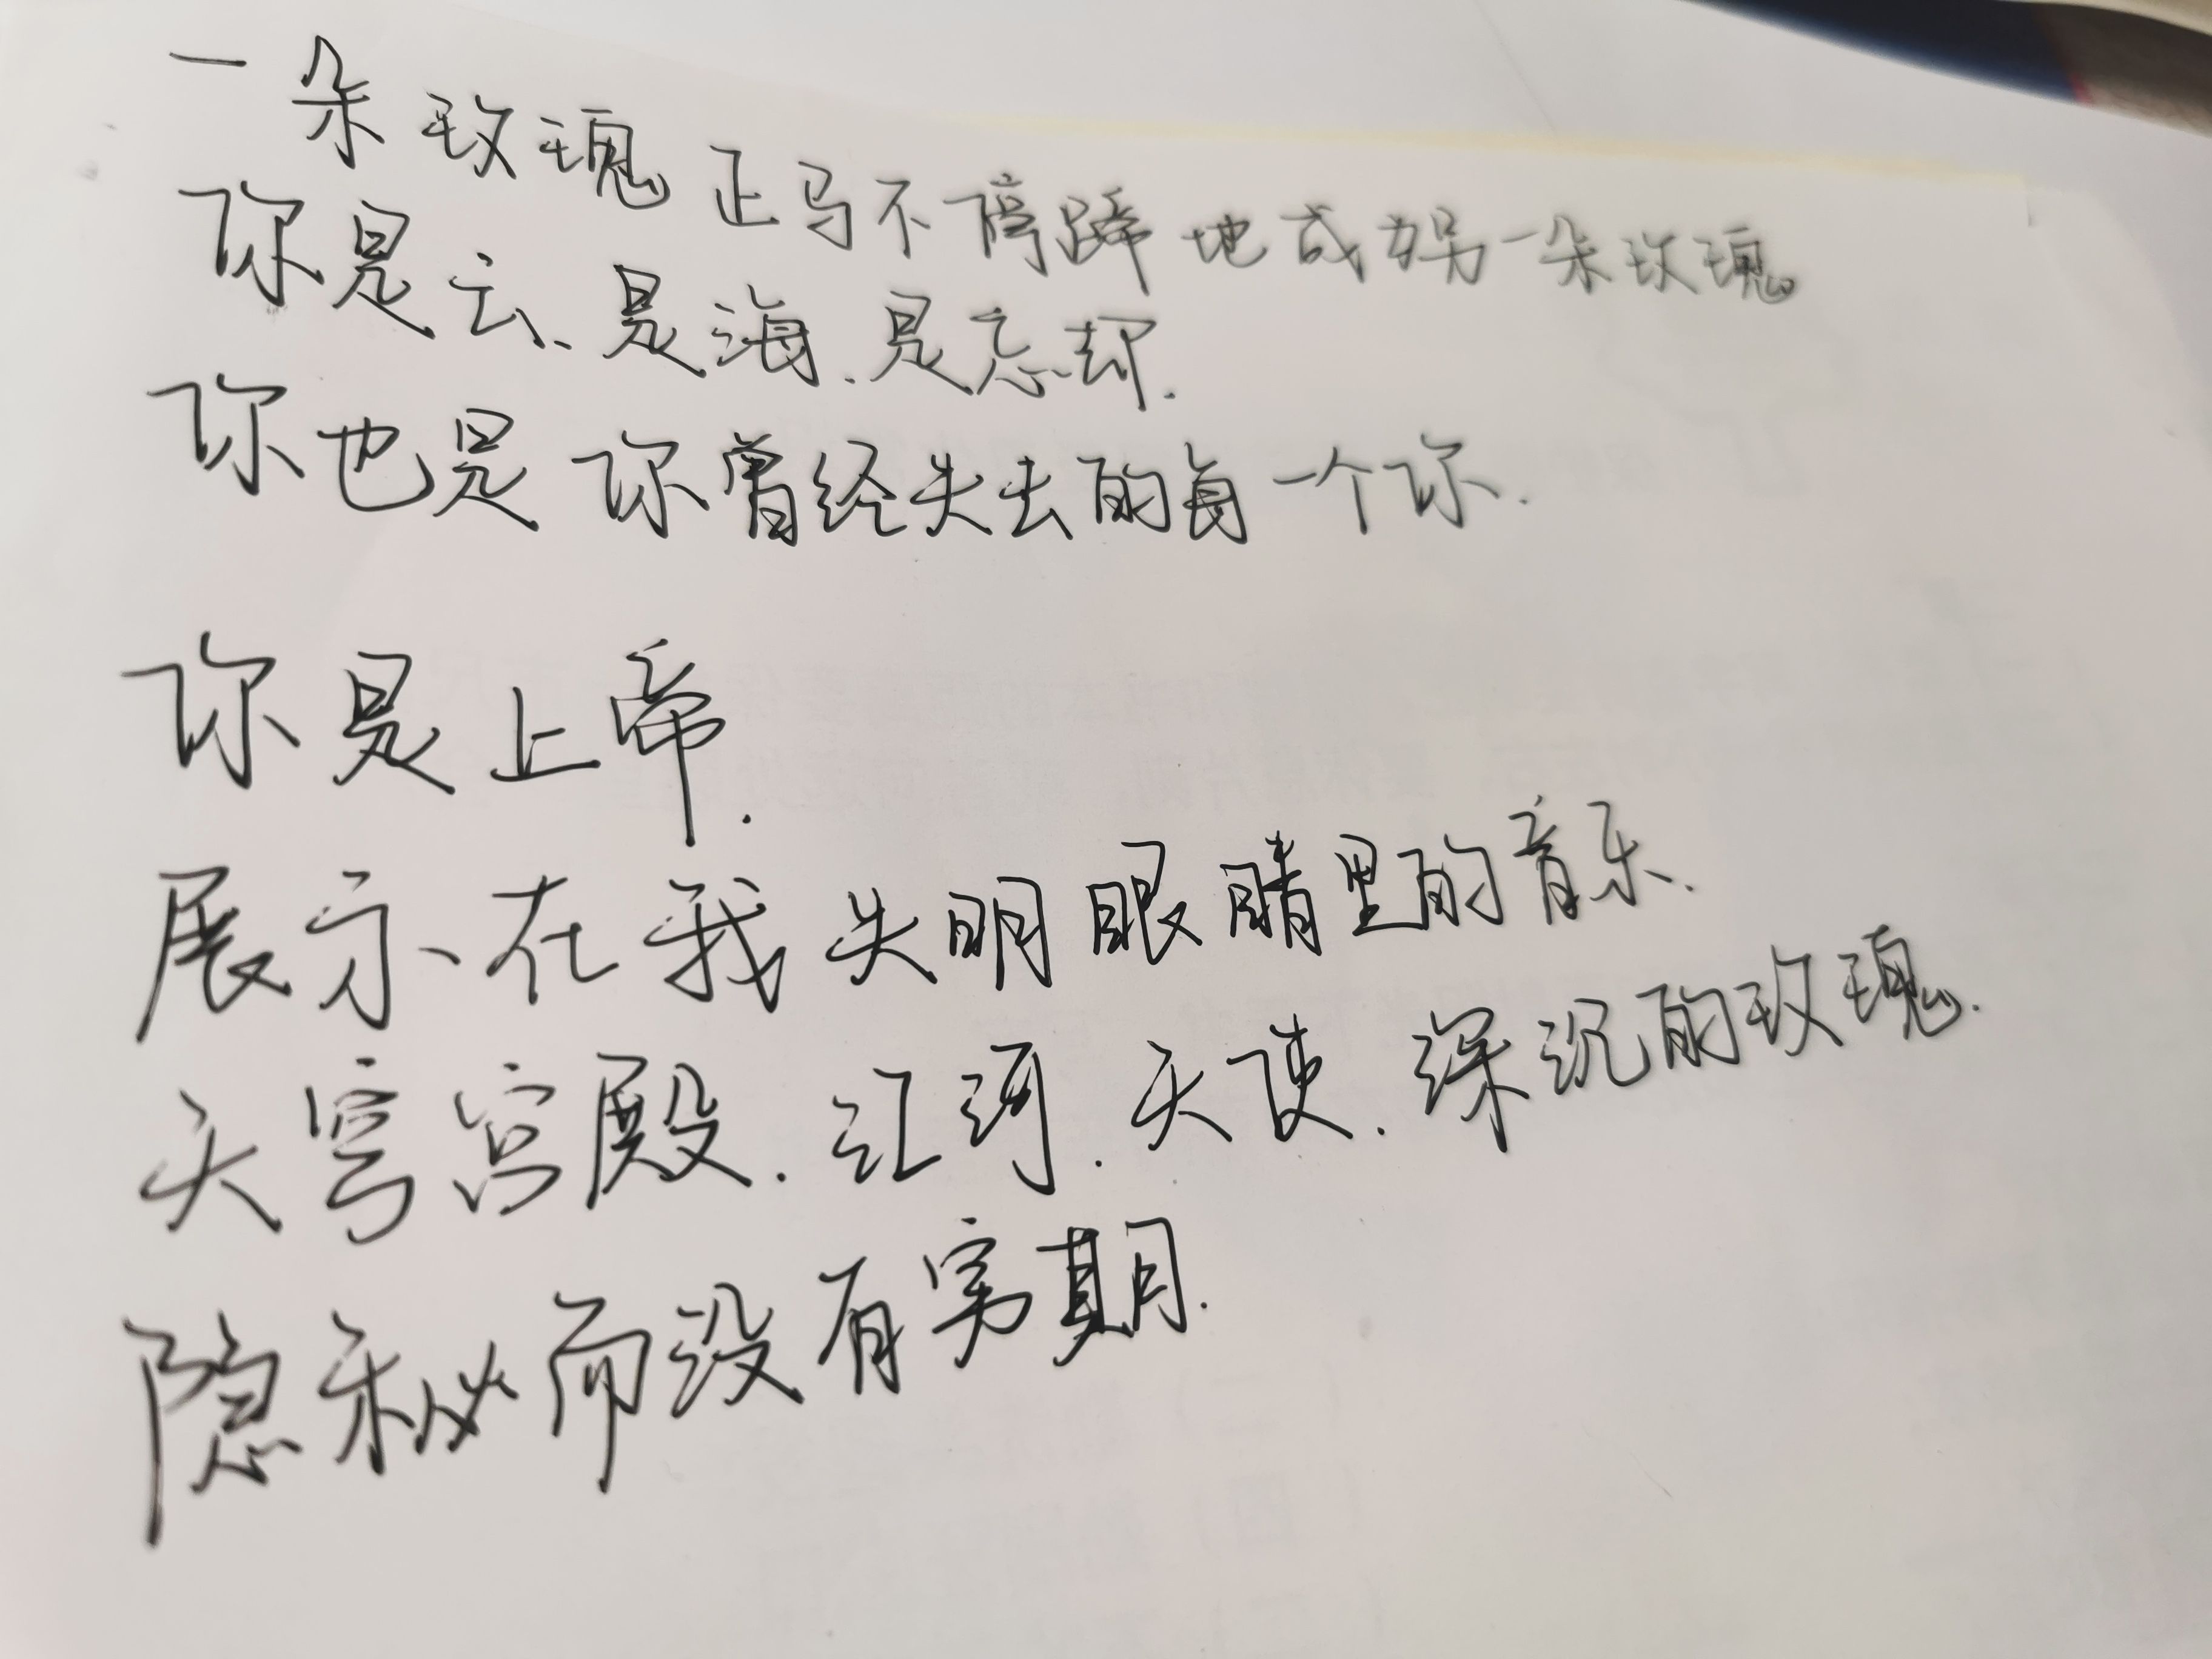 一朵玫瑰正马不停蹄地成为另一朵玫瑰
你是云、是海.是忘却.
你也是你曾经失去的每一个你.
你是上帝.
展示在我失明眼睛里的音乐、
天穹宫殿.江河.天使.深沉的玫瑰.
隐秘而没有穷期.